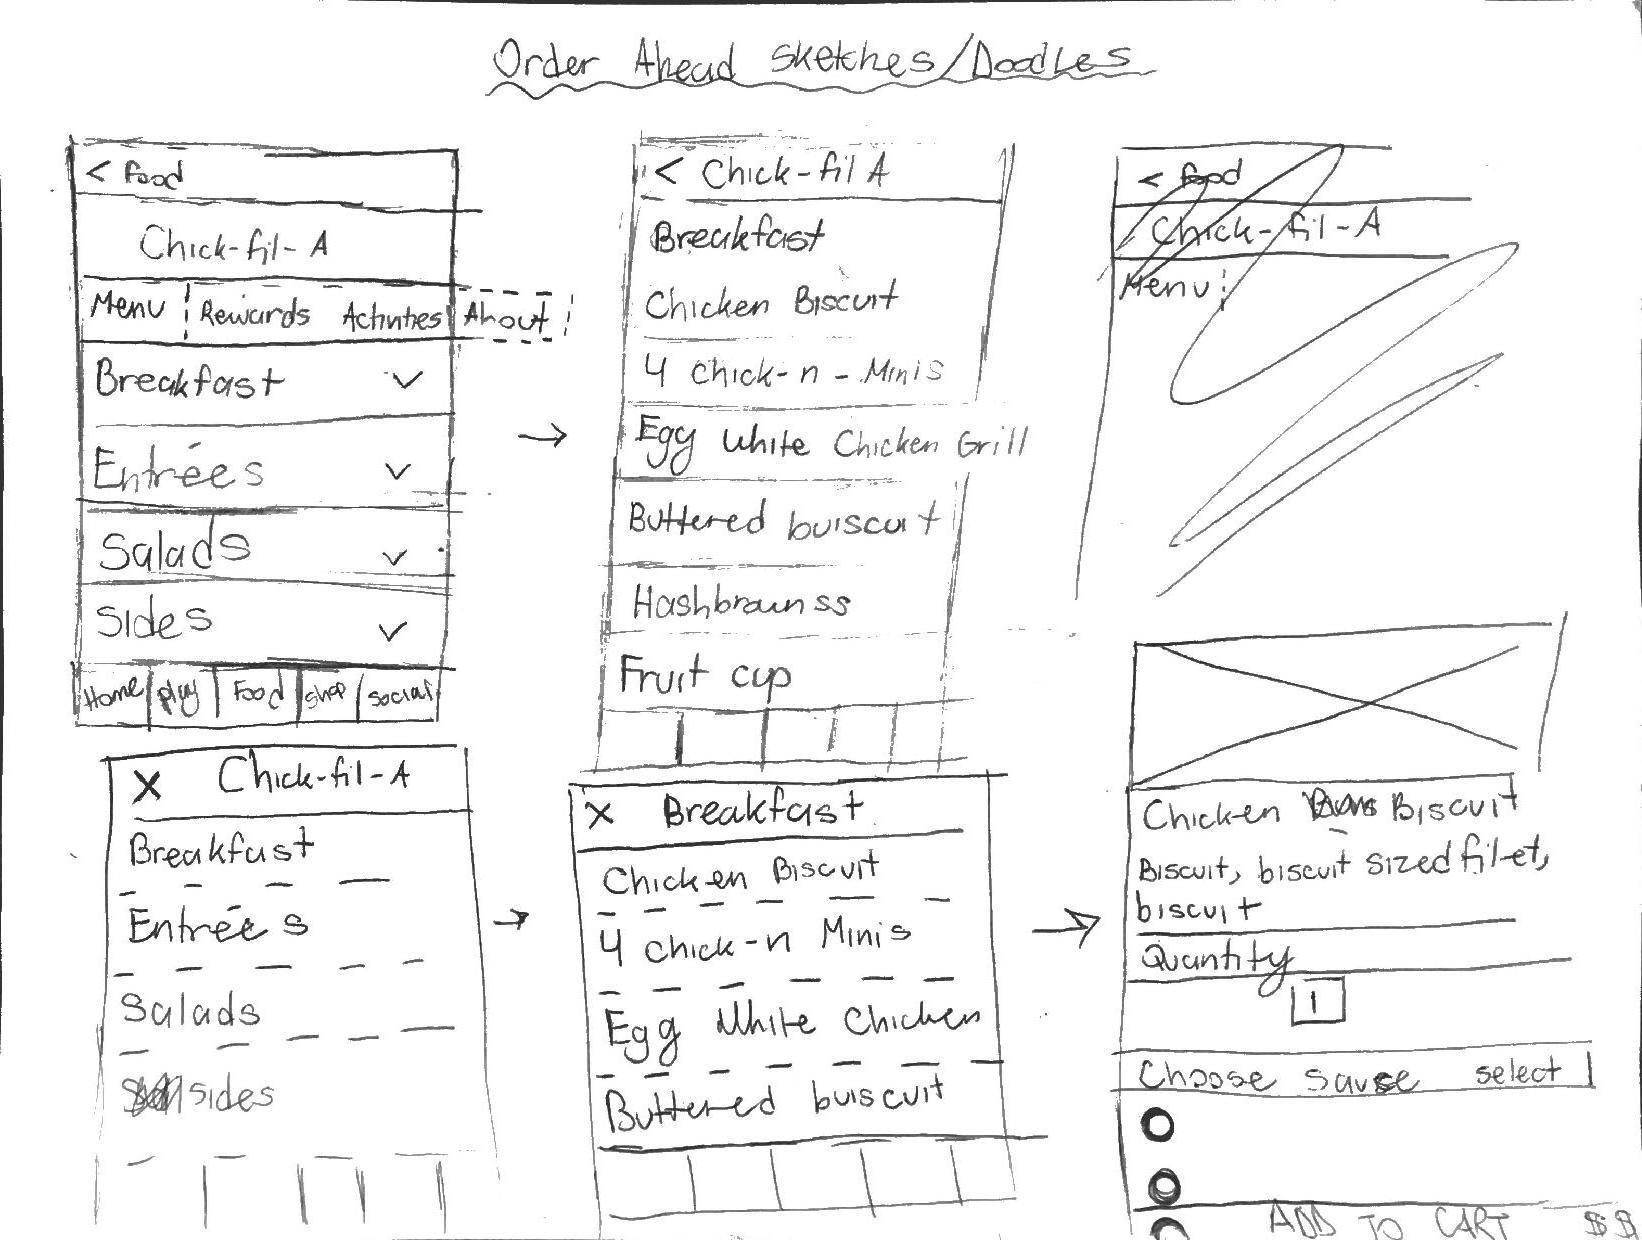 Order Ahead Sketches/Doodles
< Food
Chick-fil-A
Menu Rewards Activities About
Breakfast
Entrées
Salads
Sides
Home Play Food Shop social
< Chick-fil A
Breakfast
Chicken Biscuit
4 Chick-n-Minis
Egg White Chicken Grill
Buttered buiscuit
Hashbrownss
Fruit cup
< Food
Chick-fil-A
Menu
X Chick-fil-A
Breakfast
Entrées
Salads
sides
X Breakfast
Chicken Biscuit
4 Chick-n Minis
Egg White Chicken
Buttered buiscuit
Chicken Biscuit
Biscuit, biscuit sized filet,
biscuit
Quantity
1
Choose sauce select
ADD TO CART $$